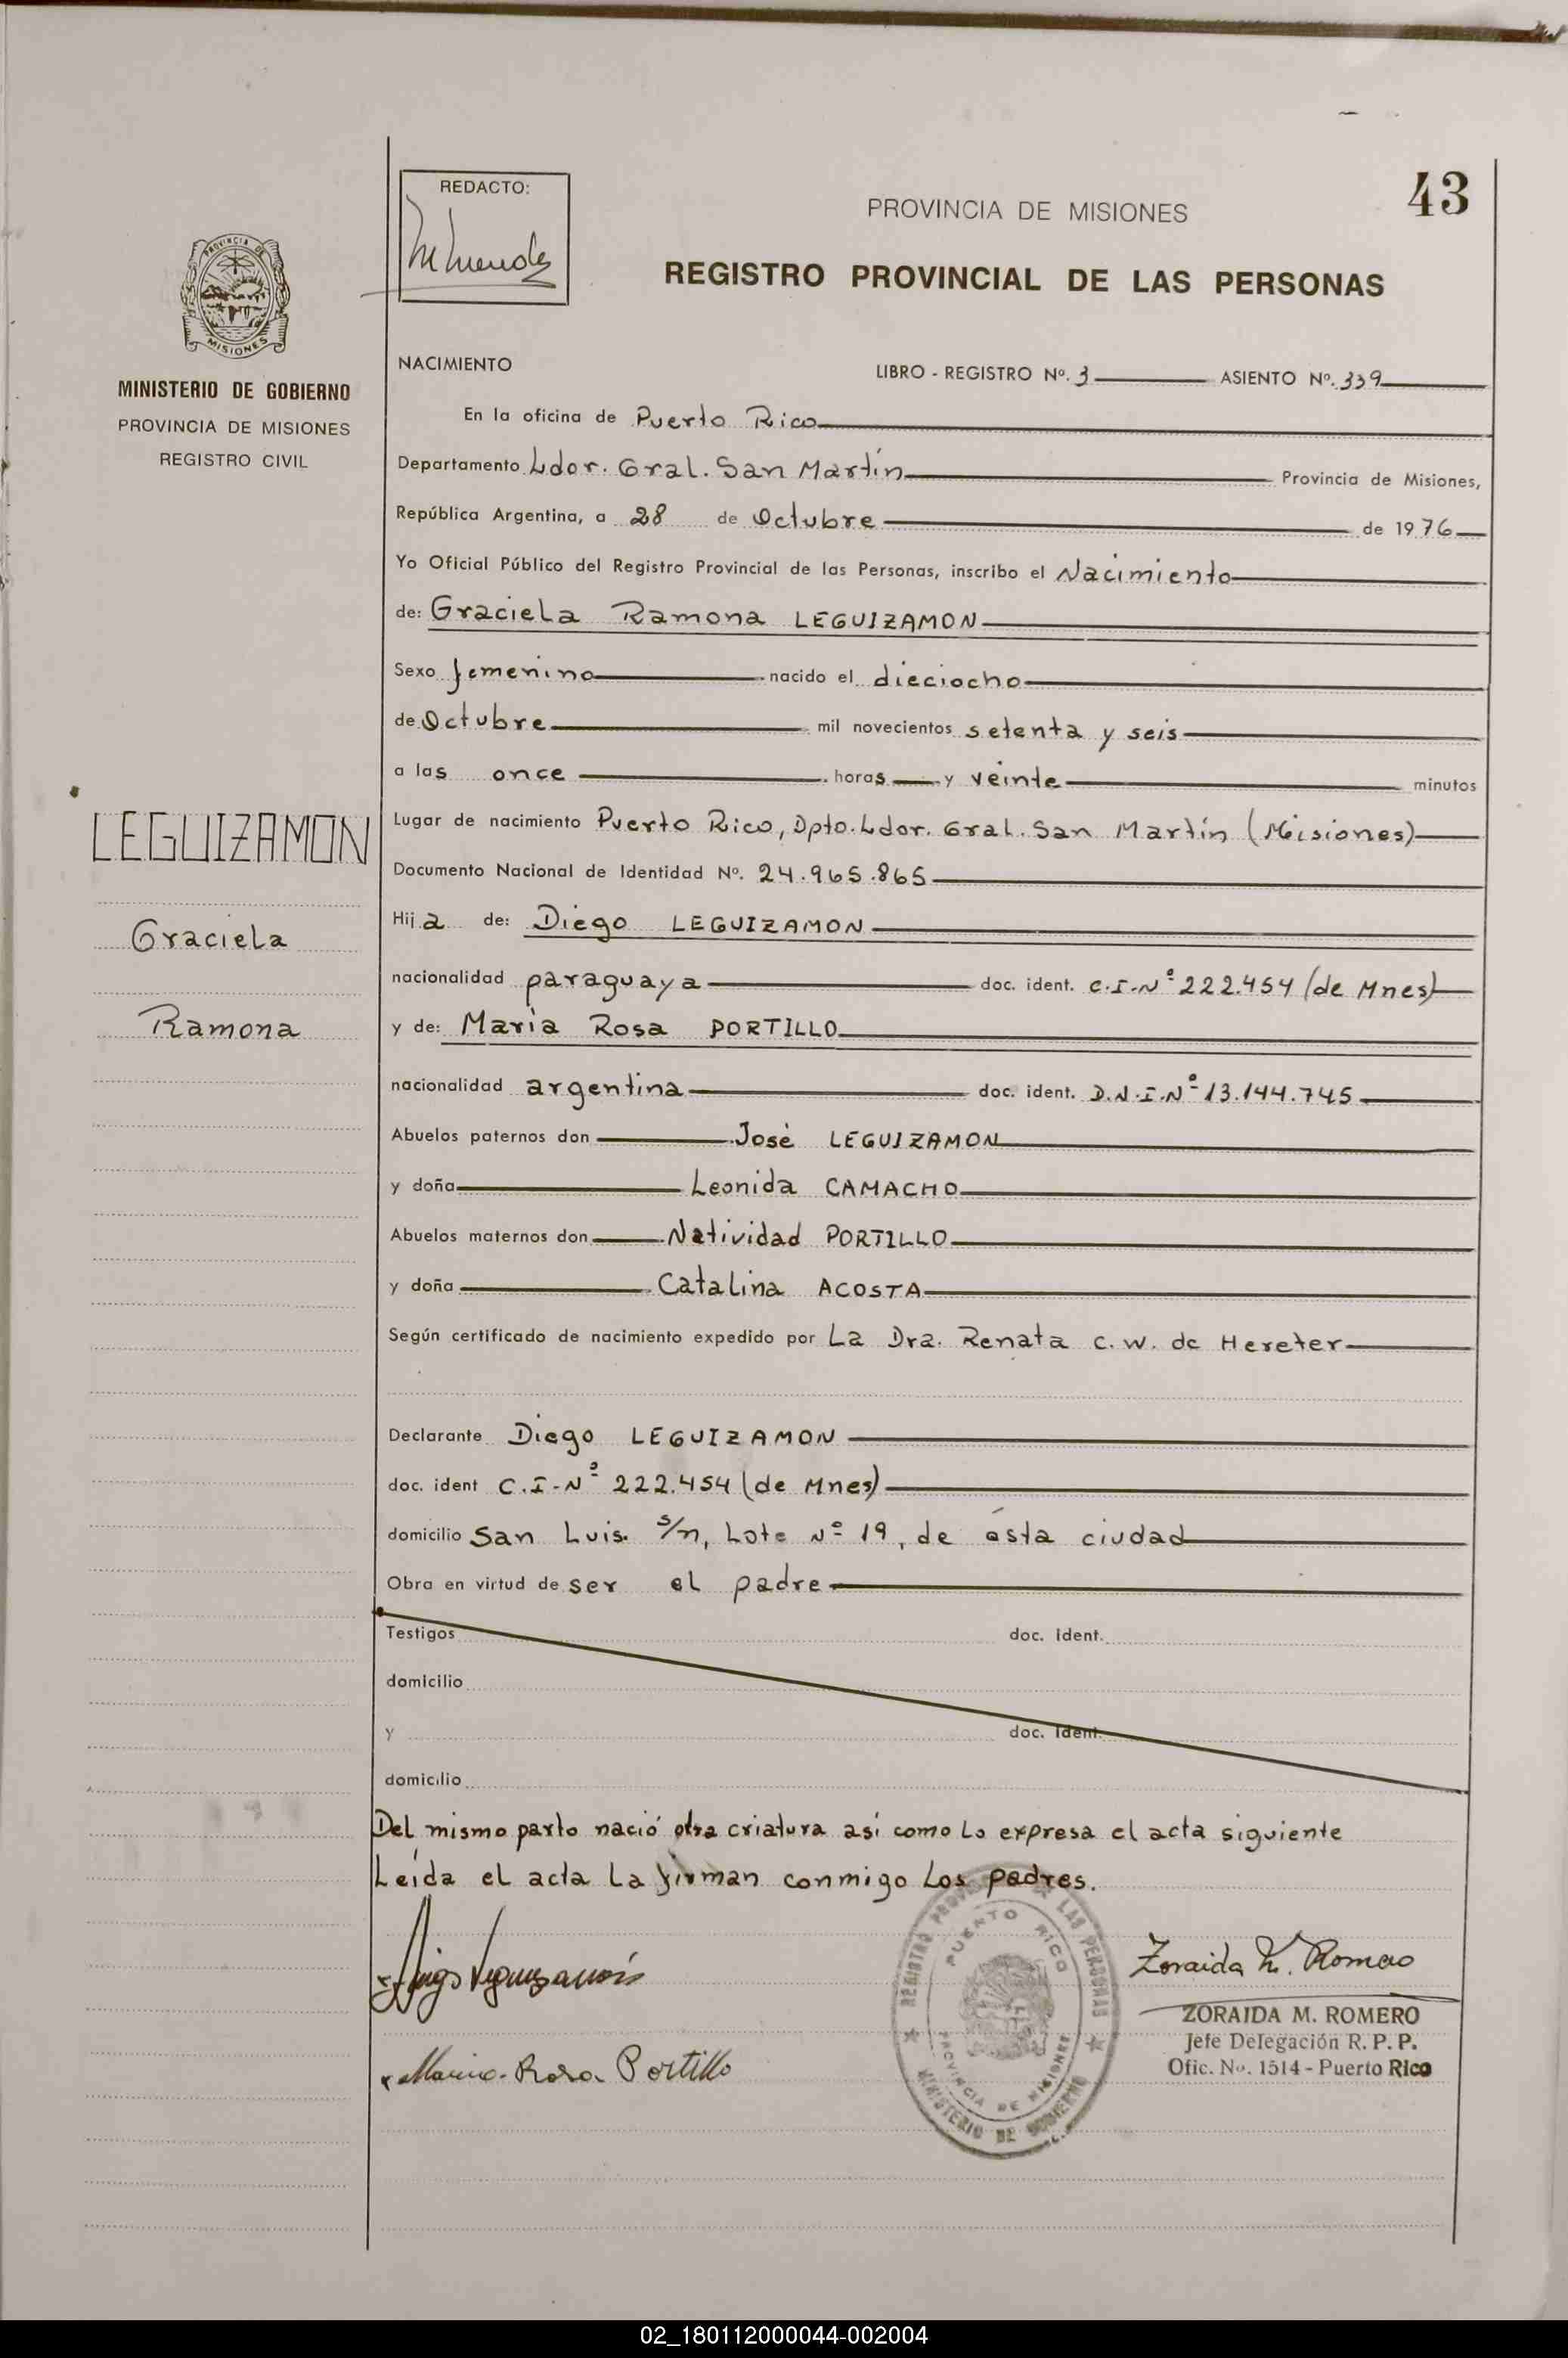 43
REDACTO:
PROVINCIA DE MISIONES
REGISTRO PROVINCIAL DE LAS PERSONAS
PROVINCIA DE
MISIONES
MINISTERIO DE GOBIERNO
PROVINCIA DE MISIONES
REGISTRO CIVIL
LEGUIZAMON
Graciela
Ramona
NACIMIENTO LIBRO - REGISTRO Nº. 3 ASIENTO Nº. 339
En la oficina de Puerto Rico
Departamento Ldor. Gral. San Martín Provincia de Misiones,
República Argentina, a 28 de Octubre de 1976
Yo Oficial Público del Registro Provincial de las Personas, inscribo el Nacimiento
de: Graciela Ramona LEGUIZAMON
Sexo femenino nacido el dieciocho
de Octubre mil novecientos setenta y seis
a las once horas y veinte minutos
Lugar de nacimiento Puerto Rico, Dpto. Ldor. Gral. San Martín (Misiones)
Documento Nacional de Identidad Nº. 24.965.865
Hija de: Diego LEGUIZAMON
nacionalidad paraguaya doc. ident. C.I.Nº 222.454 (de Mnes)
y de: María Rosa PORTILLO
nacionalidad argentina doc. ident. D.N.I.Nº 13.144.745
Abuelos paternos don José LEGUIZAMON
y doña Leonida CAMACHO
Abuelos maternos don Natividad PORTILLO
y doña Catalina ACOSTA
Según certificado de nacimiento expedido por La Dra. Renata C. W. de Hereter
Declarante Diego LEGUIZAMON
doc. ident C.I-Nº 222.454 (de Mnes)
domicilio San Luis. s/n, Lote Nº 19, de ésta ciudad
Obra en virtud de ser el padre
Testigos doc. ident.
domicilio
y doc. ident.
domicilio
Del mismo parto nació otra criatura así como lo expresa el acta siguiente
Leída el acta la firman conmigo los padres.
Leguizamón
María Rosa Portillo
REGISTRO PROVINCIAL DE LAS PERSONAS
PUERTO RICO
PROVINCIA DE MISIONES
MINISTERIO DE GOBIERNO
Zoraida M. Romero
ZORAIDA M. ROMERO
Jefe Delegación R. P. P.
Ofic. No. 1514 - Puerto Rico
02_180112000044-002004